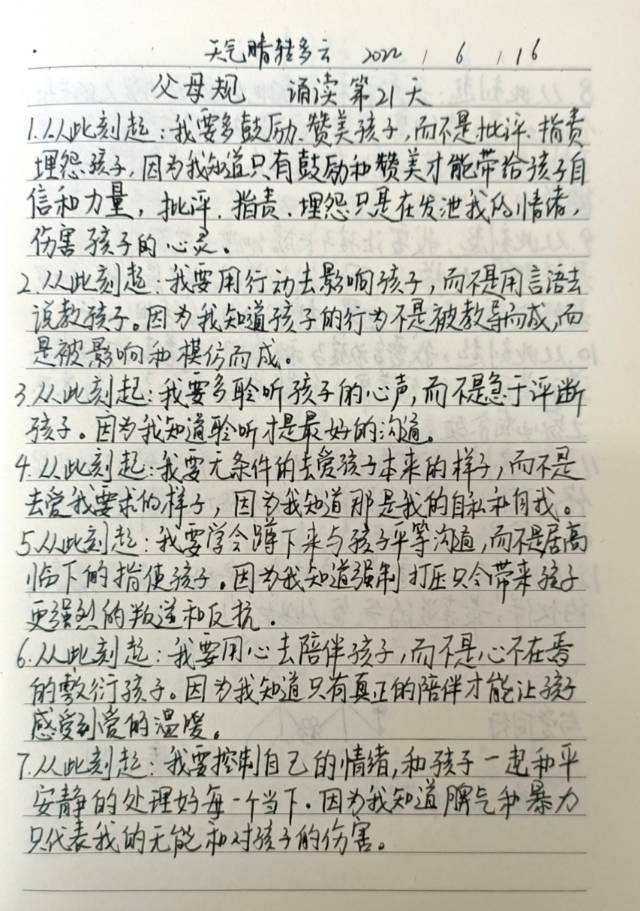 天气晴转多云 2022 / 6 / 16
父母规 诵读第21天
1.从此刻起:我要多鼓励、赞美孩子,而不是批评、指责
埋怨孩子,因为我知道只有鼓励和赞美才能带给孩子自
信和力量,批评、指责、埋怨只是在发泄我的情绪,
伤害孩子的心灵。
2.从此刻起:我要用行动去影响孩子,而不是用言语去
说教孩子。因为我知道孩子的行为不是被教导而成,而
是被影响和模仿而成。
3.从此刻起:我要多聆听孩子的心声,而不是急于评断
孩子。因为我知道聆听才是最好的沟通。
4.从此刻起:我要无条件的去爱孩子本来的样子,而不是
去爱我要求的样子,因为我知道那是我的自私和自我。
5.从此刻起:我要学会蹲下来与孩子平等沟通,而不是居高
临下的指使孩子。因为我知道强制打压只会带来孩子
更强烈的叛逆和反抗.
6.从此刻起:我要用心去陪伴孩子,而不是心不在焉
的敷衍孩子。因为我知道只有真正的陪伴才能让孩子
感受到爱的温暖。
7.从此刻起:我要控制自己的情绪,和孩子一起和平
安静的处理好每一个当下.因为我知道脾气和暴力
只代表我的无能和对孩子的伤害。